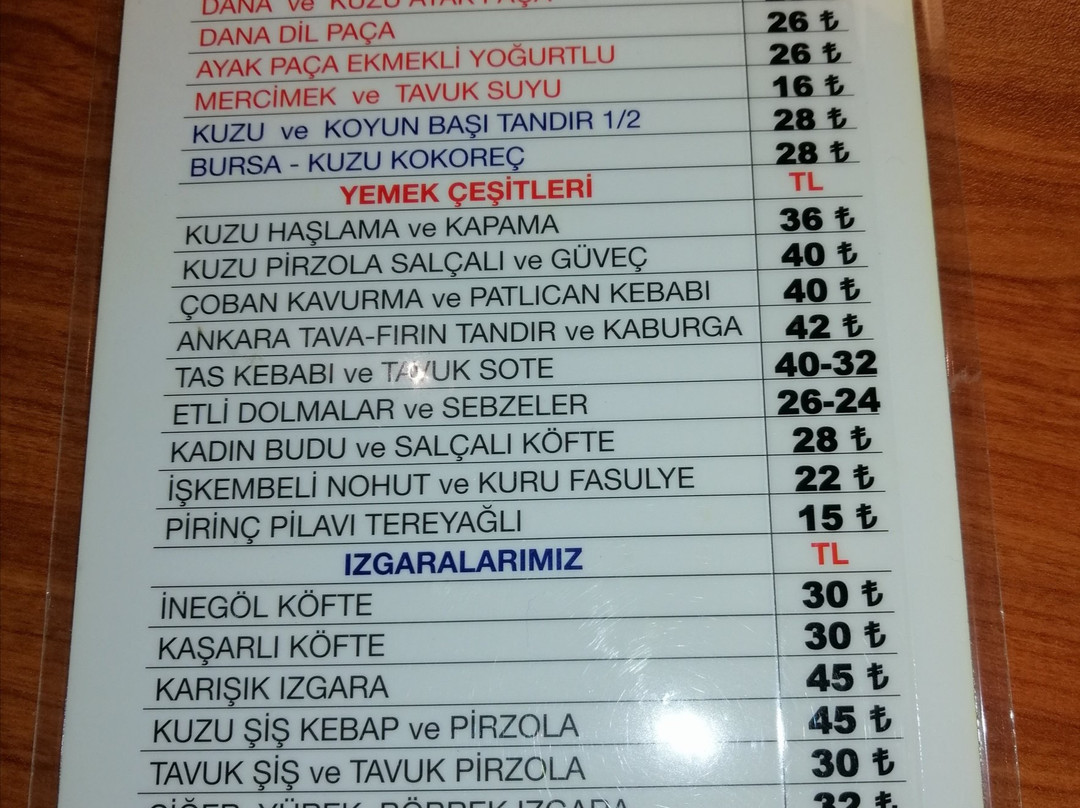 DANA ve KUZU AYAK PAÇA
DANA DİL PAÇA 26 ₺
AYAK PAÇA EKMEKLİ YOĞURTLU 26 ₺
MERCİMEK ve TAVUK SUYU 16 ₺
KUZU ve KOYUN BAŞI TANDIR 1/2 28 ₺
BURSA - KUZU KOKOREÇ 28 ₺
YEMEK ÇEŞİTLERİ TL
KUZU HAŞLAMA ve KAPAMA 36 ₺
KUZU PİRZOLA SALÇALI ve GÜVEÇ 40 ₺
ÇOBAN KAVURMA ve PATLICAN KEBABI 40 ₺
ANKARA TAVA-FIRIN TANDIR ve KABURGA 42 ₺
TAS KEBABI ve TAVUK SOTE 40-32
ETLİ DOLMALAR ve SEBZELER 26-24
KADIN BUDU ve SALÇALI KÖFTE 28 ₺
İŞKEMBELİ NOHUT ve KURU FASULYE 22 ₺
PİRİNÇ PİLAVI TEREYAĞLI 15 ₺
IZGARALARIMIZ TL
İNEGÖL KÖFTE 30 ₺
KAŞARLI KÖFTE 30 ₺
KARIŞIK IZGARA 45 ₺
KUZU ŞİŞ KEBAP ve PİRZOLA 45 ₺
TAVUK ŞİŞ ve TAVUK PİRZOLA 30 ₺
CİĞER YÜREK BÖBREK IZGARA 32 ₺